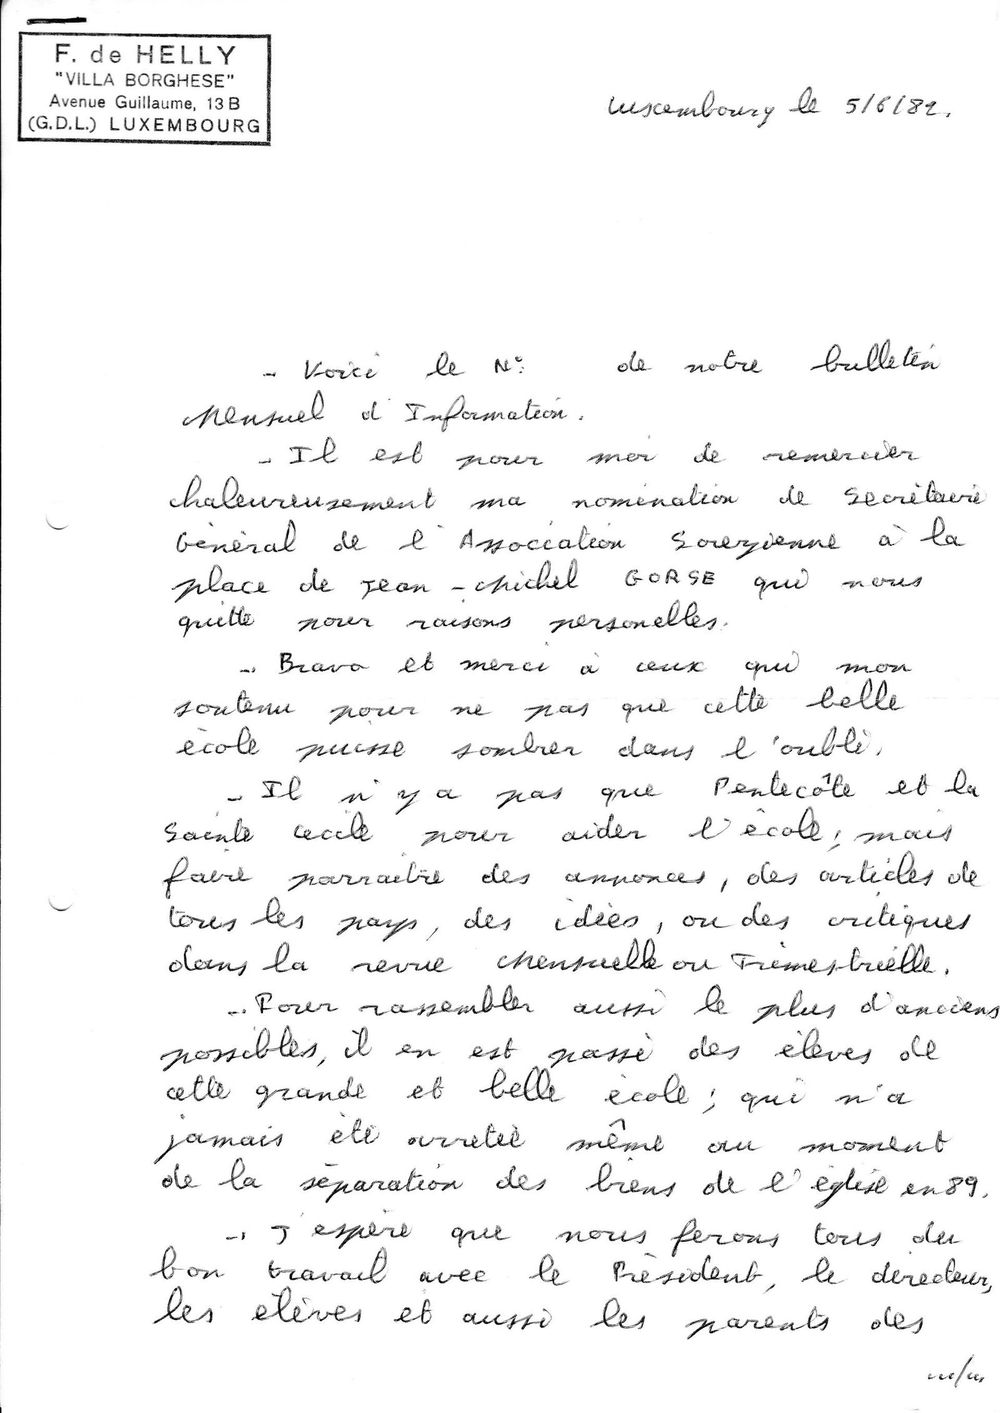 F. de HELLY
"VILLA BORGHESE"
Avenue Guillaume, 13 B
(G.D.L.) LUXEMBOURG
Luxembourg le 5/6/82.
- Voici le N° de notre bulletin
Mensuel d'Information.
- Il est pour moi de remercier
chaleureusement ma nomination de Secrètaire
Gènèral de l'Association Sorezienne à la
place de Jean-Michel GORSE qui nous
quitte pour raisons personelles.
- Bravo et merci à ceux qui mon
soutenu pour ne pas que cette belle
ècole puisse sombrer dans l'oubli.
- Il n'y a pas que Pentecôte et la
Sainte Cecile pour aider l'ècole; mais
faire parraitre des annonces, des articles de
tous les pays, des idèes, ou des critiques
dans la revue Mensuelle ou Trimestrielle.
- Pour rassembler aussi le plus d'anciens
possibles, il en est passè des èleves de
cette grande et belle ècole; qui n'a
jamais ètè arretèe même au moment
de la sèparation des biens de l'èglise en 89.
- J'espère que nous ferons tous du
bon travail avec le Prèsident, le directeur,
les èlèves et aussi les parents des
.../...